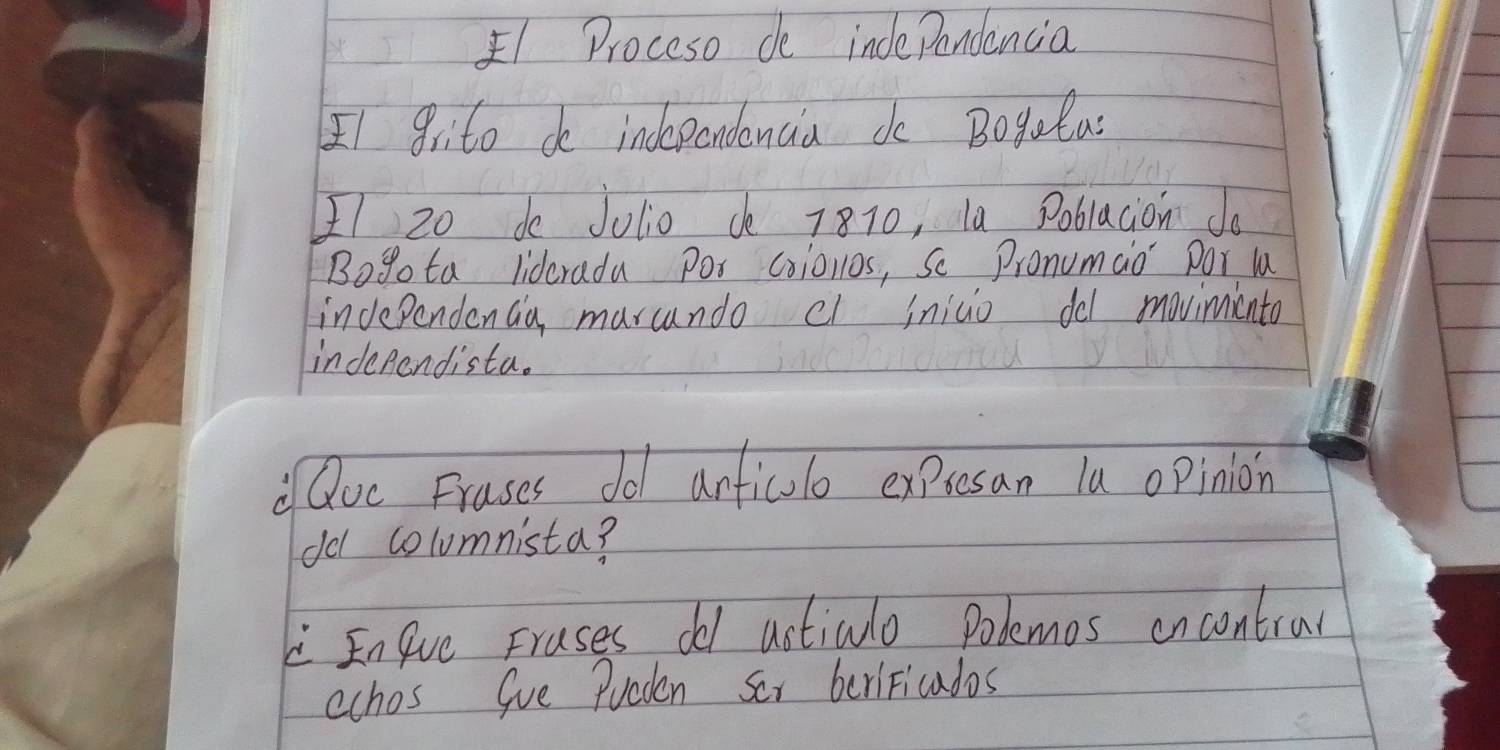 El Proceso de independencia
El grito de independencia de Bogota:
El 20 de Julio de 1810, la Población de
Bogota liderada Por criollos, se Pronumció por la
independencia, marcando el inicio del movimiento
independista.
¿Que Frases del articulo expresan la opinión
del columnista?
¿ En que Frases del articulo podemos encontrar
echos que Pueden ser berificados